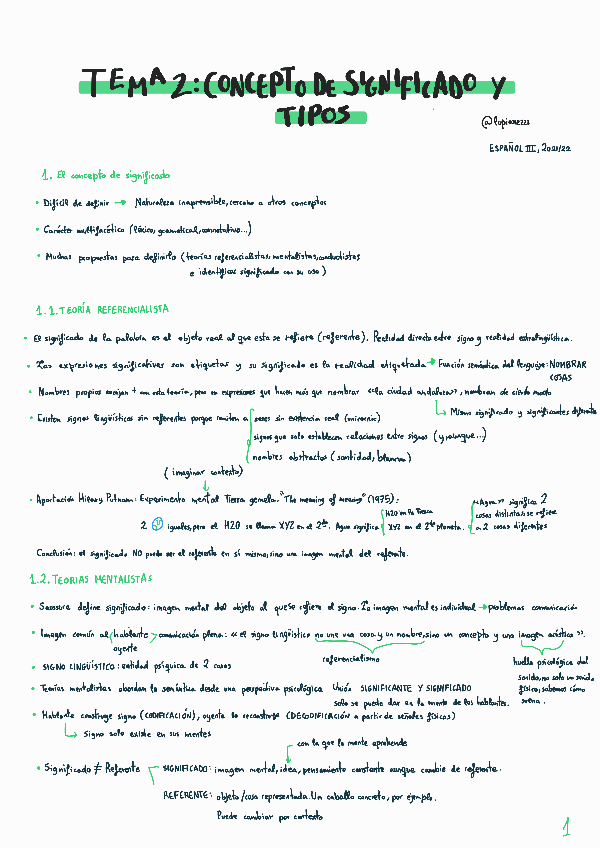 TEMA 2: CONCEPTO DE SIGNIFICADO Y
TIPOS
ESPAÑOL III, 2021/22
1. El concepto de significado
• Difícil de definir → Naturaleza inaprensible, cercano a otros conceptos
• Carácter multifacético (léxico, gramatical, connotativo...)
• Muchas propuestas para definirlo (teorías referencialistas, mentalistas, conductistas
e identificar significado con su uso)
1.1. TEORÍA REFERENCIALISTA
• El significado de la palabra es el objeto real al que esta se refiere (referente). Realidad directa entre signo y realidad extralingüística.
• Las expresiones significativas son etiquetas y su significado es la realidad etiquetada → Función semántica del lenguaje: NOMBRAR
COSAS
• Nombres propios encajan + con esta teoría, pero en expresiones que hacen más que nombrar «la ciudad andaluza», nombran de cierto modo
↳ Mismo significado y significantes diferentes
• Existen signos lingüísticos sin referentes porque remiten a seres sin existencia real (unicornio)
signos que solo establecen relaciones entre signos (y, aunque...)
nombres abstractos (santidad, blancura)
(imaginar contexto)
• Aportación Hilary Putnam: Experimento mental Tierra gemela. "The meaning of meaning" (1975):
«Agua» significa 2
cosas distintas, se refiere
a 2 cosas diferentes
H2O en la Tierra
2 iguales, pero el H2O se llama XYZ en el 2do. Agua significa XYZ en el 2do planeta.
Conclusión: el significado NO puede ser el referente en sí mismo, sino una imagen mental del referente.
1.2. TEORÍAS MENTALISTAS
• Saussure define significado: imagen mental del objeto al que se refiere el signo. La imagen mental es individual → problemas comunicación
• Imagen común al hablante > comunicación plena: «el signo lingüístico no une una cosa y un nombre, sino un concepto y una imagen acústica».
oyente
referencialismo
huella psicológica del
sonido, no solo un sonido
físico, sabemos cómo
suena.
• SIGNO LINGÜÍSTICO: entidad psíquica de 2 caras
• Teorías mentalistas abordan la semántica desde una perspectiva psicológica
Unión SIGNIFICANTE Y SIGNIFICADO
solo se puede dar en la mente de los hablantes.
• Hablante construye signo (CODIFICACIÓN), oyente lo reconstruye (DECODIFICACIÓN a partir de señales físicas)
↳ Signo solo existe en sus mentes
con la que la mente aprehende
• Significado ≠ Referente
SIGNIFICADO: imagen mental, idea, pensamiento constante aunque cambie de referente.
REFERENTE: objeto/cosa representada. Un caballo concreto, por ejemplo.
Puede cambiar por contexto
1